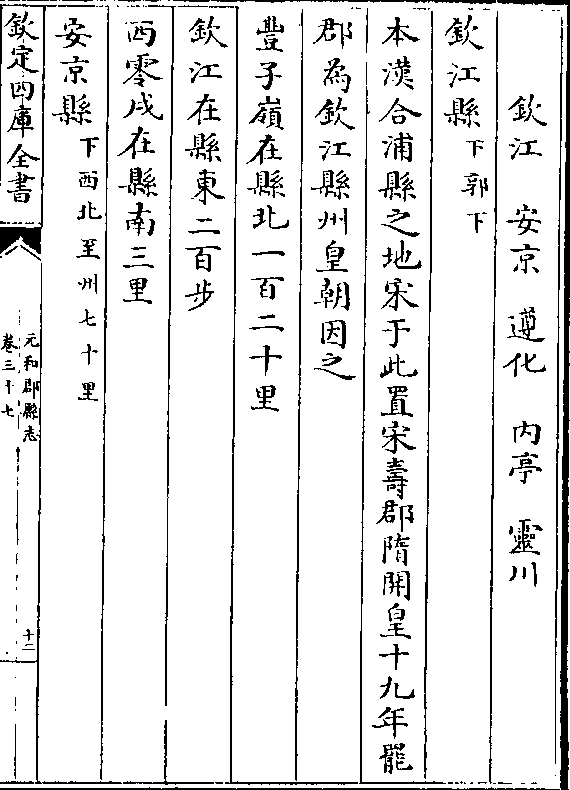 欽江　安京　遵化　内亭　靈川
欽江縣下郭下
本漢合浦縣之地宋于此置宋壽郡隋開皇十九年罷
郡為欽江縣州皇朝因之
豐子嶺在縣北一百二十里
欽江在縣東二百步
西零戍在縣南三里
安京縣下西北至州七十里
欽定四庫全書
元和郡縣志
卷三十七
十二